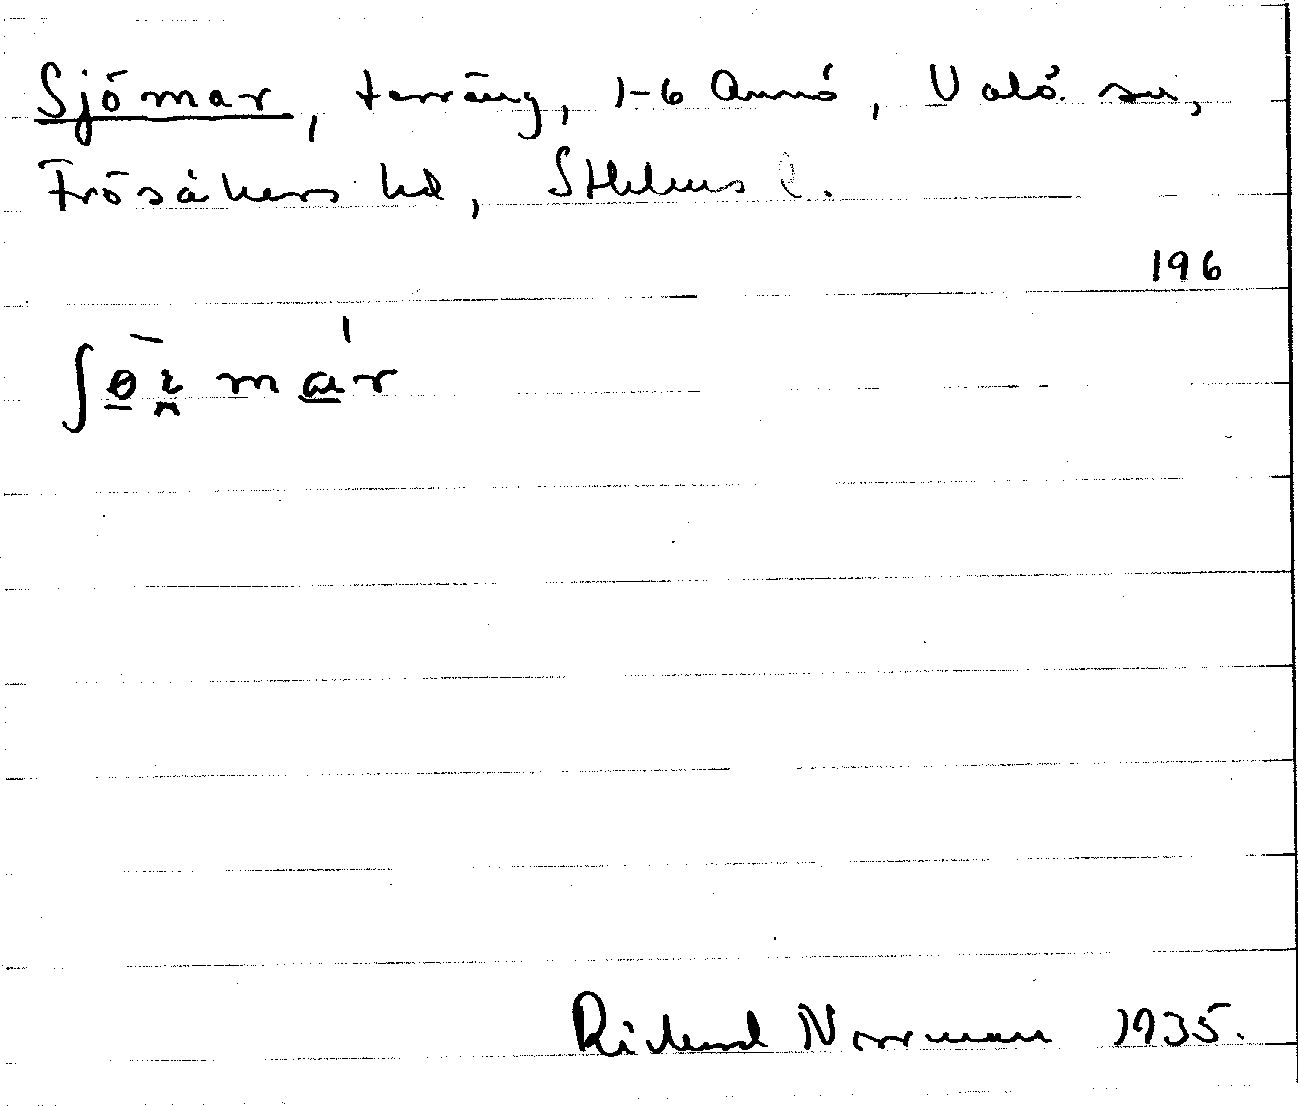 Sjömar, terräng, 1-6 Annö, Valö sn,
Frösåkers hd, Sthlms l.
196
Rickard Norrman 1935.